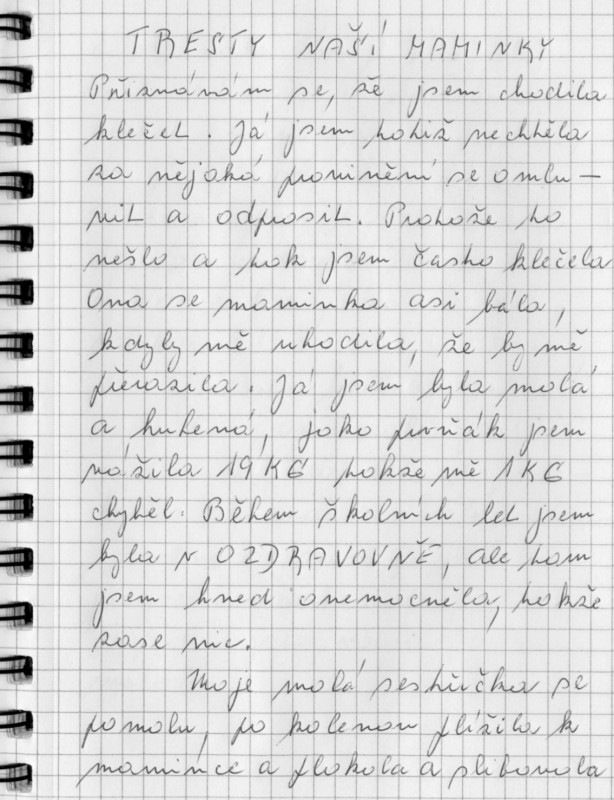 TRESTY NAŠÍ MAMINKY
Přiznávám se, že jsem chodila
klečet. Já jsem totiž nechtěla
za nějaká provinění se omlu–
vit a odprosit. Protože to
nešlo a tak jsem často klečela
Ona se maminka asi bála,
kdyby mě uhodila, že by mě
přerazila. Já jsem byla malá
a hubená, jako prvňák jsem
vážila 19 KG takže mě 1 KG
chyběl. Během školních let jsem
byla v OZDRAVOVNĚ, ale tam
jsem hned onemocněla, takže
zase nic.
Moje malá sestřička se
pomalu, po kolenou plížila k
mamince a plakala a slibovala